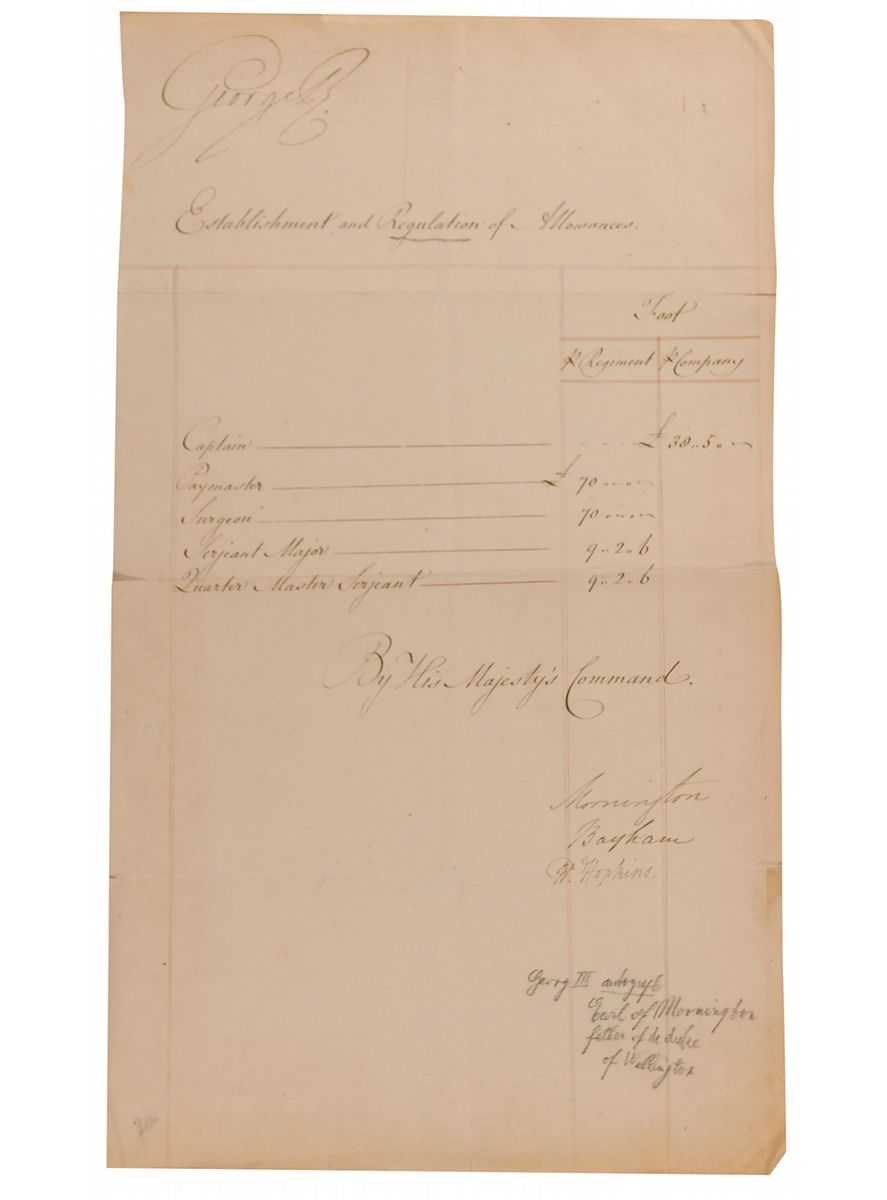 George R.
Establishment and Regulation of Allowances.
Foot
⅌ Regiment ⅌ Company
Captain £ 38 " 5 " —
Paymaster £ 70 " — " —
Surgeon 70 " — " —
Serjeant Major 9 " 2 " 6
Quarter Master Serjeant 9 " 2 " 6
By His Majesty's Command.
Mornington
Bayham
W. Hopkins.
Georg III autograph
Earl of Mornington
father of the duke
of Wellington